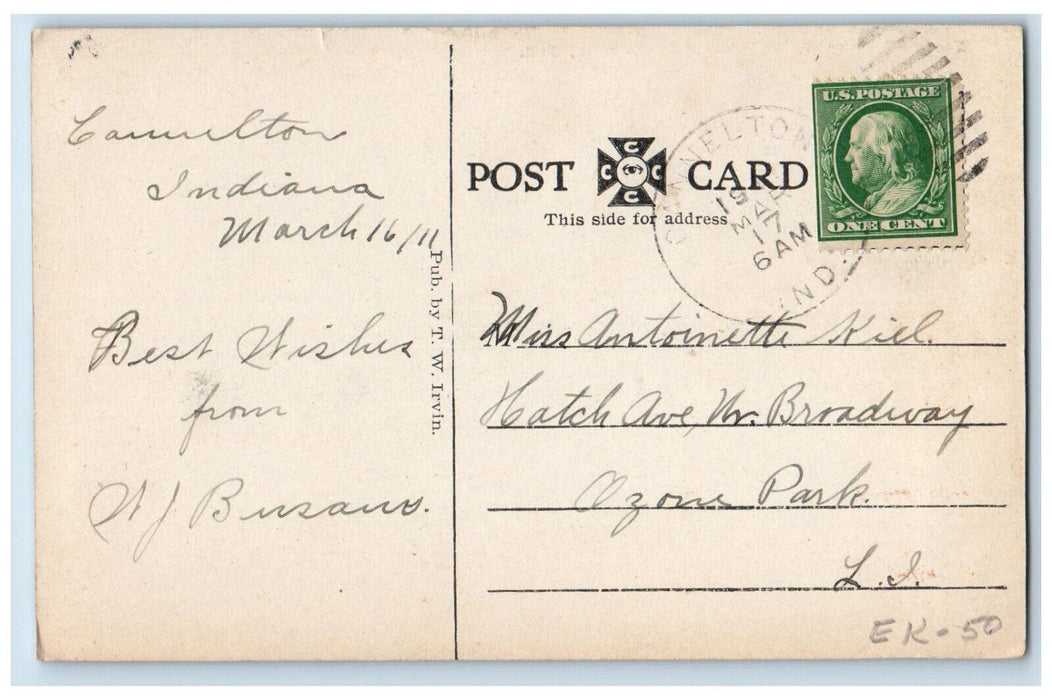 Cannelton
Indiana
March 16/11
Best Wishes
from
Pub. by T. W. Irvin.
POST CARD
C C C C
This side for address
CANNELTON
19 MAR
17
6 AM
IND.
U.S. POSTAGE
ONE CENT
Miss Antoinette Kiel.
Hatch Ave, Nr. Broadway
Ozone Park.
L. I.
EK-50